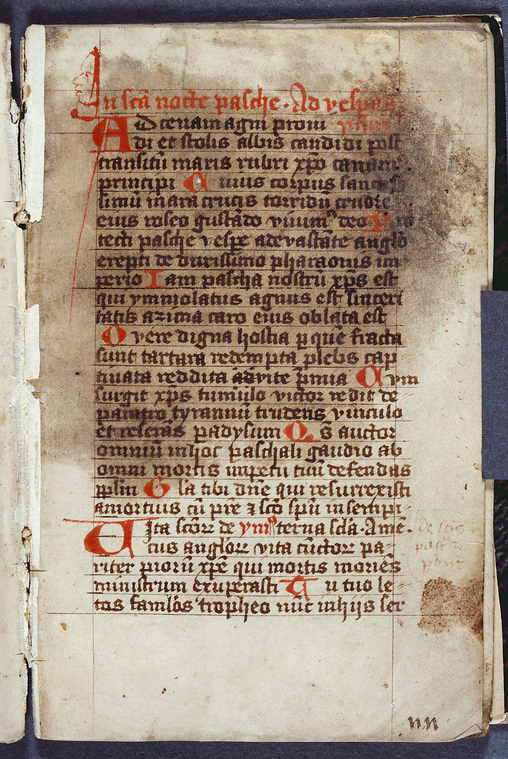 In scā nocte pasche. Ad vesperas
Ad cenam agni provi ymnus
di et stolis albis candidi post
transitū maris rubri xpo canam9
principi Cuius corpus sanctis
simū in ara crucis torridū cruore
eius roseo gustādo vivim9 deo Pro
tecti pasche vespe a devastāte anglo
erepti de durissimo pharaonis im
perio Iam pascha nostrū xps est
qui ymmolatus agnus est sinceri
tatis azima caro eius oblata est
O vere digna hostia p quē fracta
sunt tartara redempta plebs cap
tivata reddita ad vite pmia Cum
surgit xps tumulo victor redit de
baratro tyrannū trudens vinculo
et reserās padysum Qs auctor
omniū in hoc paschali gaudio ab
omni mortis impetu tuū defendas
pplm Gla tibi dne qui resurrexisti
a mortuis cū pre ⁊ sco spū in sempi
terna scla. Ame.
Vita scōꝝ de ymn9
cus angloꝝ vita cūctoꝝ pa
riter pioru xpe qui mortis moriēs
ministrum exuperasti Tu tuo le
tos famlos tropheo nūc in hiis ser